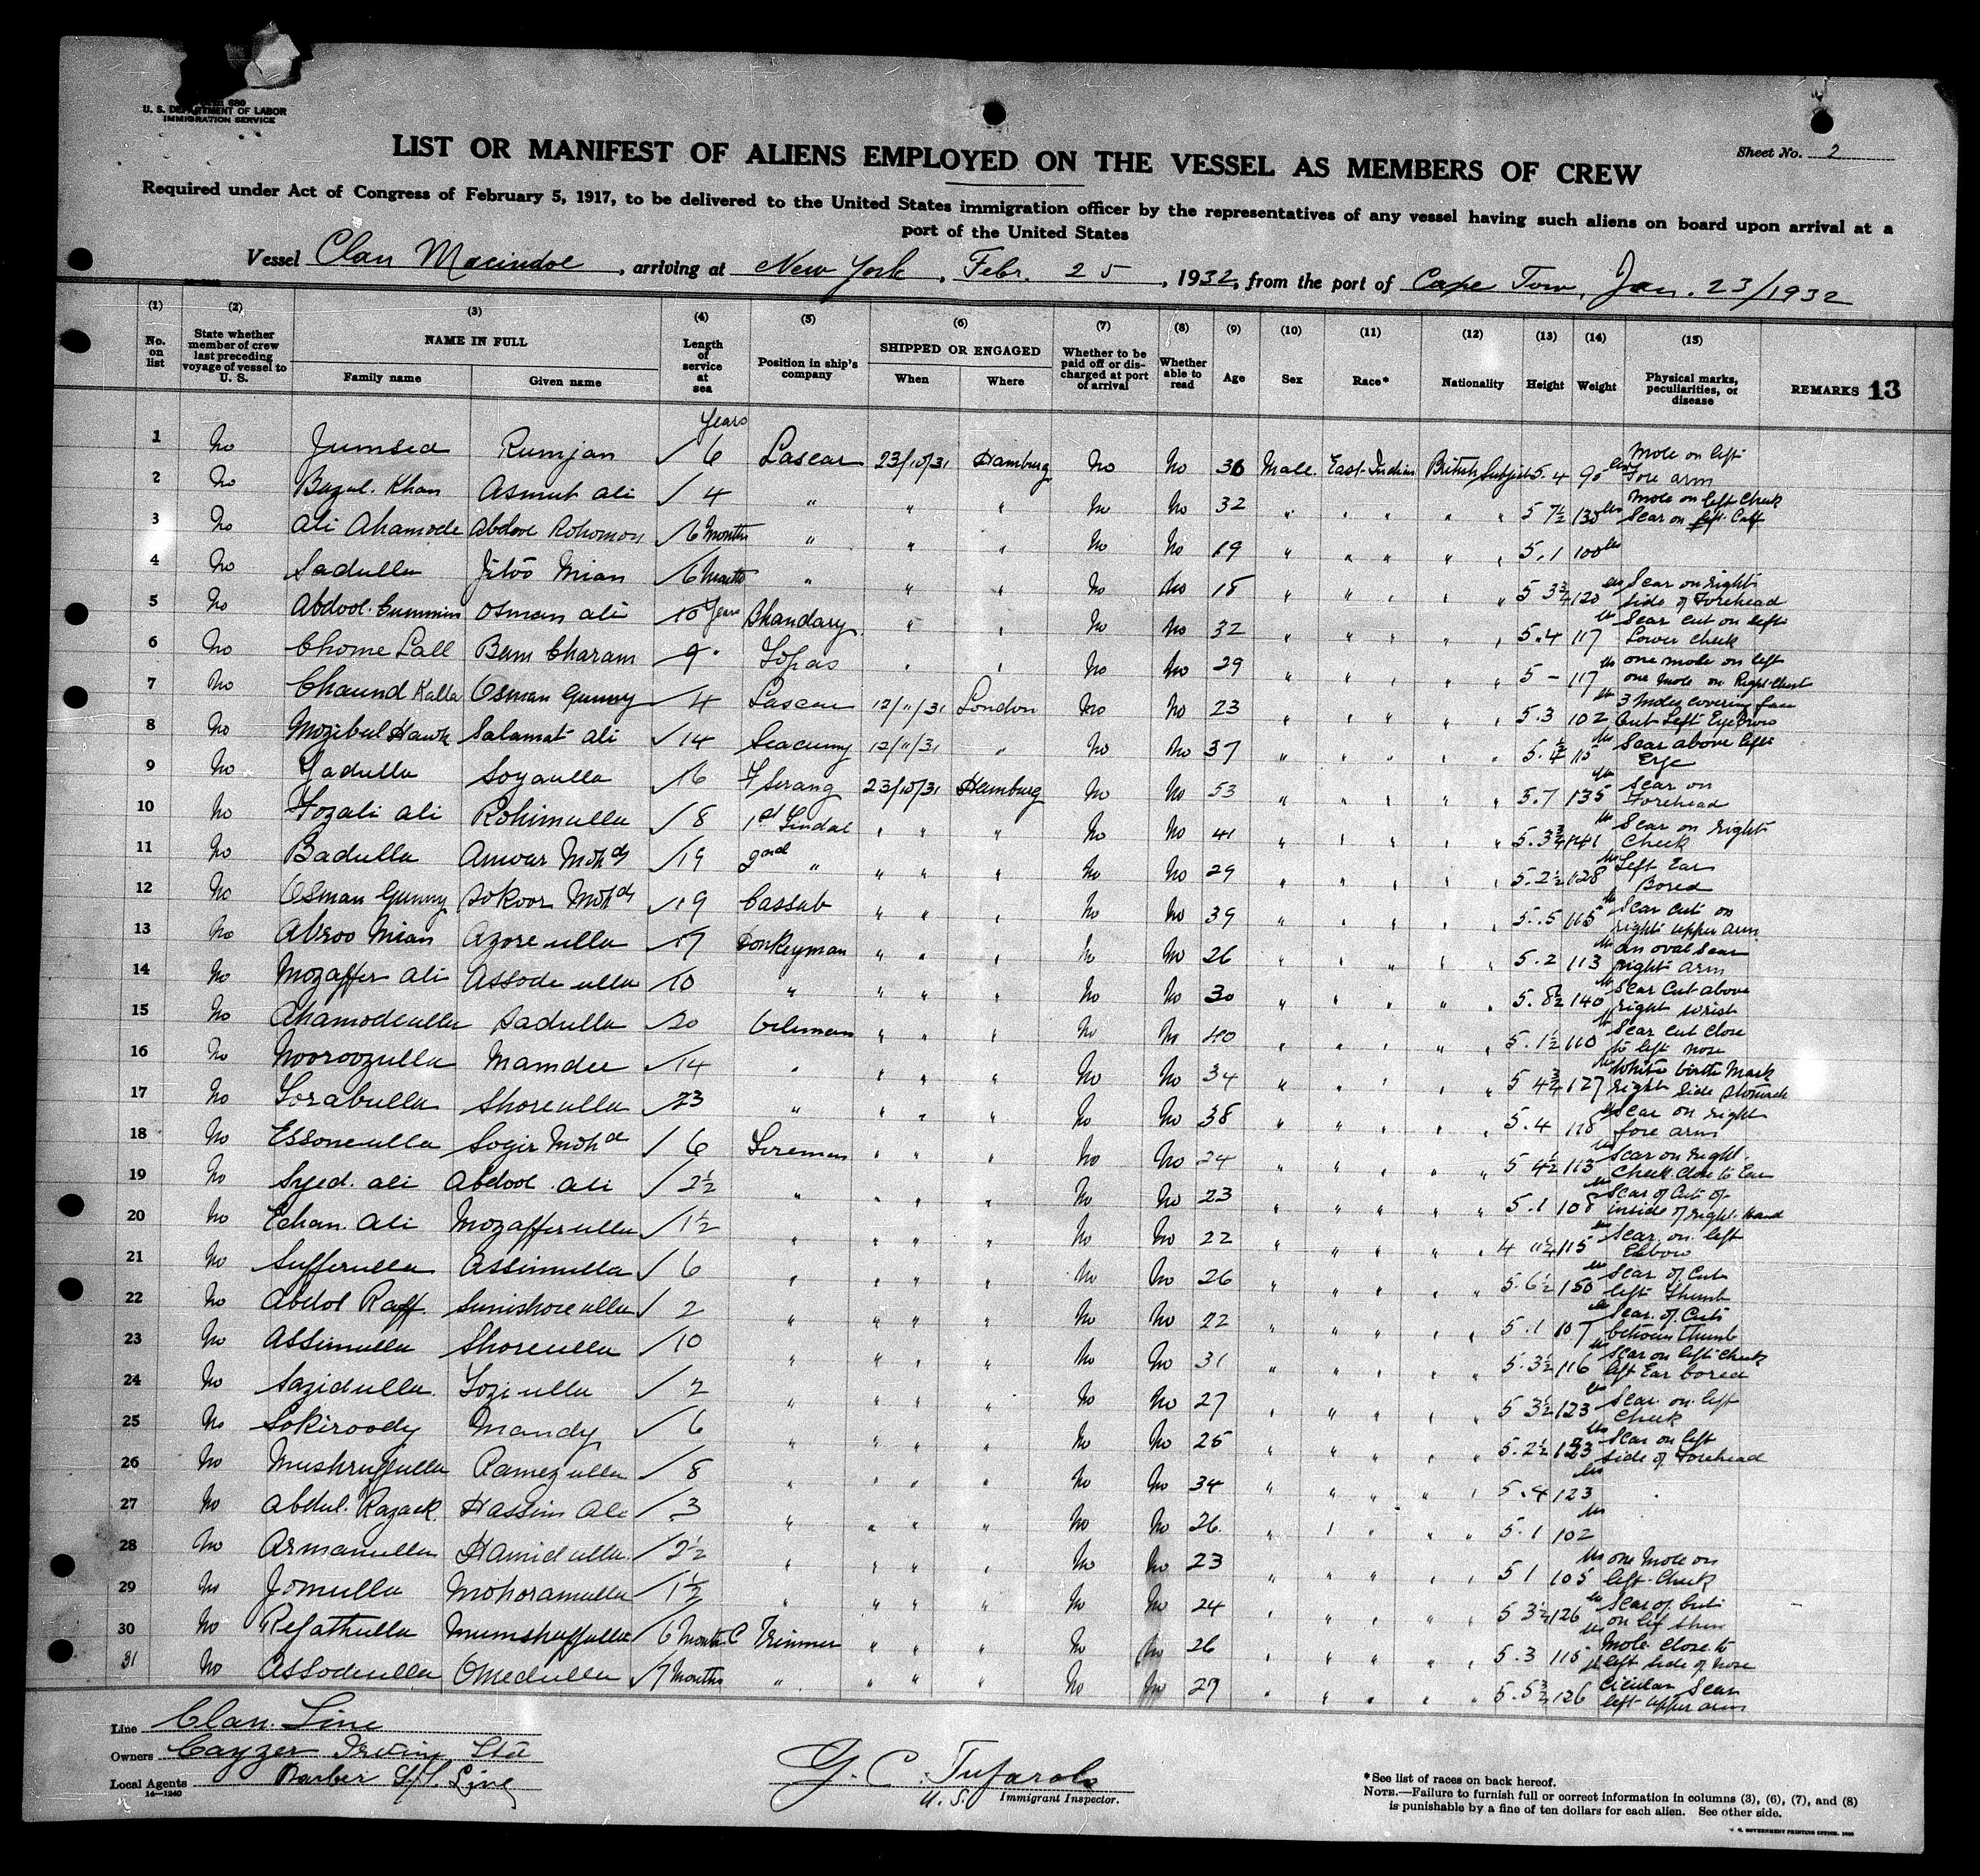 Form 680
U. S. DEPARTMENT OF LABOR
IMMIGRATION SERVICE
Sheet No. 2
LIST OR MANIFEST OF ALIENS EMPLOYED ON THE VESSEL AS MEMBERS OF CREW
Required under Act of Congress of February 5, 1917, to be delivered to the United States immigration officer by the representatives of any vessel having such aliens on board upon arrival at a
port of the United States
Vessel Clan Macindoe, arriving at New York, Febr. 25, 1932, from the port of Cape Town, Jan. 23/1932
(1) (2) (3) (4) (5) (6) (7) (8) (9) (10) (11) (12) (13) (14) (15)
No. on list State whether member of crew last preceding voyage of vessel to U. S. NAME IN FULL Family name Given name Length of service at sea Position in ship's company SHIPPED OR ENGAGED When Where Whether to be paid off or discharged at port of arrival Whether able to read Age Sex Race* Nationality Height Weight Physical marks, peculiarities, or disease REMARKS 13
Years
1 No Jumsed Rumjan √ 6 Lascar 23/10/31 Hamburg No No 36 Male East-Indian British Subject 5.4 90 lbs Mole on left Fore arm
2 No Bazul. Khan Asmut Ali √ 4 " " " No No 32 " " " " " 5 7½ 130 lbs Mole on left Cheek Scar on left Calf
3 No Ali Ahamode Abdool Rohomon √ 6 Months " " " No No 19 " " " " " 5.1 100 lbs
4 No Sadulla Jitoo Mian √ 6 Months " " " No No 18 " " " " " 5 3¾ 120 lbs Scar on right side of Forehead
5 No Abdool. Gummim Osman Ali 10 Years Bhandary " " No No 32 " " " " " 5.4 117 lbs Scar cut on left Lower cheek
6 No Chome Lall Bum Charam 9 " Topas " " No No 29 " " " " " 5 - 117 lbs one mole on left one mole on Right Chest
7 No Chaund Kalla Osman Gunny √ 4 Lascar 12/11/31 London No No 23 " " " " " 5.3 102 lbs 3 Moles covering face Cut Left Eye Brow
8 No Mozibul Hawk Salamat Ali √ 14 Seacunny 12/11/31 " No No 37 " " " " " 5.4½ 115 lbs Scar above left Eye
9 No Yadulla Soyaulla √ 16 F Serang 23/10/31 Hamburg No No 53 " " " " " 5.7 135 lbs Scar on Forehead
10 No Fozali Ali Rohimulla √ 8 1st Tindal " " " No No 41 " " " " " 5.3¾ 141 lbs Scar on right Cheek
11 No Badulla Anwar Mohd √ 19 2nd " " " " No No 29 " " " " " 5.2½ 128 lbs Left Ear Bored
12 No Osman Gunny Sokoor Mohd √ 19 Cassab " " " No No 39 " " " " " 5.5 115 lbs Scar cut on right upper arm
13 No Abroo Mian Azore ulla √ 17 Donkeyman " " " No No 26 " " " " " 5.2 113 lbs An oval Scar right arm
14 No Mozaffer Ali Assode ulla √ 10 " " " " No No 30 " " " " " 5.8½ 140 lbs Scar Cut above right wrist
15 No Ahamodeulla Sadulla √ 20 Oilman " " " No No 40 " " " " " 5.1½ 110 lbs Scar cut close to left nose
16 No Nooroozulla Mamdee √ 14 " " " " No No 34 " " " " " 5 4¾ 127 lbs White birth Mark right side stomach
17 No Sorabulla Shoreulla √ 23 " " " " No No 38 " " " " " 5.4 118 lbs Scar on right fore arm
18 No Essoneulla Sogir Mohd √ 6 Fireman " " " No No 24 " " " " " 5 4½ 113 lbs Scar on right Cheek close to Ear
19 No Syed. Ali Abdool. Ali √ 2½ " " " " No No 23 " " " " " 5.1 108 lbs Scar of Cut of inside of right Hand
20 No Echan. Ali Mozafferulla √ 1½ " " " " No No 22 " " " " " 4 11¼ 115 lbs Scar on left Elbow
21 No Sufferulla Assimulla √ 6 " " " " No No 26 " " " " " 5.6½ 150 lbs Scar of Cut left Thumb
22 No Abdol Raff Sumshoreulla √ 2 " " " " No No 22 " " " " " 5.1 107 lbs Scar of Cuts between Thumb
23 No Assimulla Shoreulla √ 10 " " " " No No 31 " " " " " 5.3½ 116 lbs Scar on left Cheek left Ear bored
24 No Sazidulla. Foziulla √ 2 " " " " No No 27 " " " " " 5 3½ 123 lbs Scar on left Cheek
25 No Sokiroody Mandy √ 6 " " " " No No 25 " " " " " 5.2½ 123 lbs Scar on left side of Forehead
26 No Mushruffulla Ramezulla √ 8 " " " " No No 34 " " " " " 5.4 123 lbs
27 No Abdul. Razack. Hassim Ali √ 3 " " " " No No 26 " " " " " 5.1 102 lbs
28 No Armanulla Hamidulla √ 2½ " " " " No No 23 " " " " " 5 1 105 lbs one Mole on left Cheek
29 No Jomulla Mohoramulla √ 1½ " " " " No No 24 " " " " " 5 3½ 126 lbs Scar of Cut on left Shin
30 No Refathulla Mumshuffulla √ 6 Months C Trimmer " " " No No 26 " " " " " 5.3 115 lbs Mole Close to left side of Nose
31 No Assodeulla Omedulla √ 7 Months " " " " No No 27 " " " " " 5.5¾ 126 lbs Circular Scar left upper arm
Line Clan. Line
Owners Cayzer Irvine Ltd
Local Agents Barber S/S. Line
14—1240
G. C. Tufarolo
U. S. Immigrant Inspector.
*See list of races on back hereof.
NOTE.—Failure to furnish full or correct information in columns (3), (6), (7), and (8)
is punishable by a fine of ten dollars for each alien. See other side.
U. S. GOVERNMENT PRINTING OFFICE. 1930